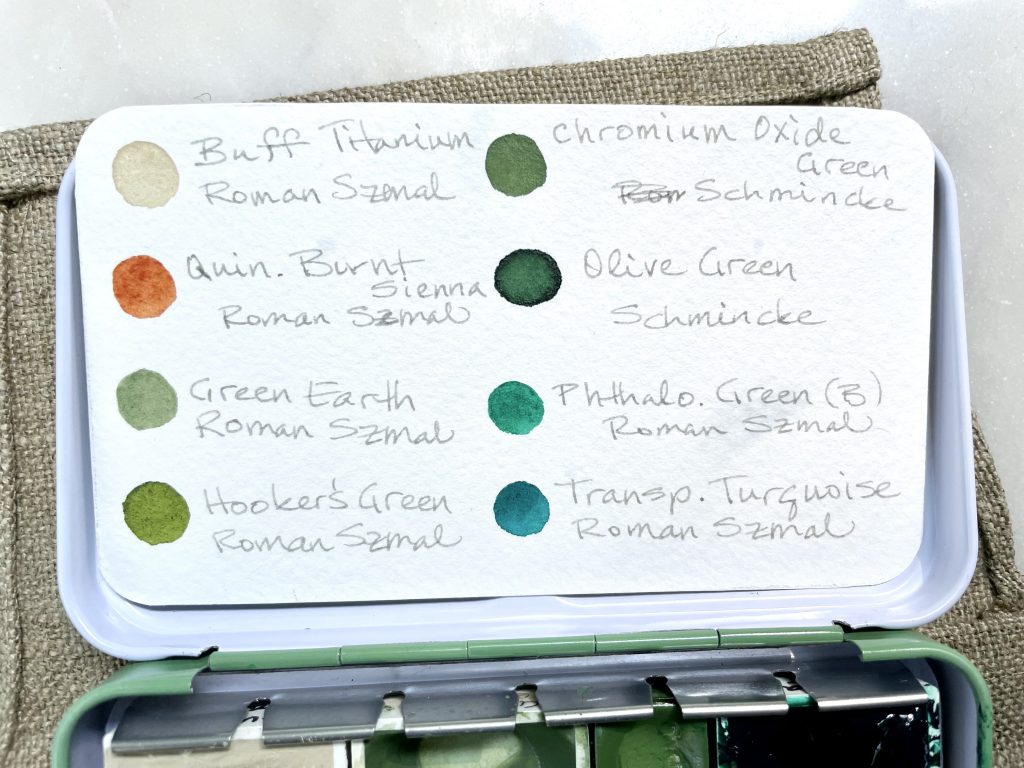 Buff Titanium
Roman Szmal
Quin. Burnt
Sienna
Roman Szmal
Green Earth
Roman Szmal
Hooker's Green
Roman Szmal
Chromium Oxide
Green
Schmincke
Olive Green
Schmincke
Phthalo. Green (B)
Roman Szmal
Transp. Turquoise
Roman Szmal